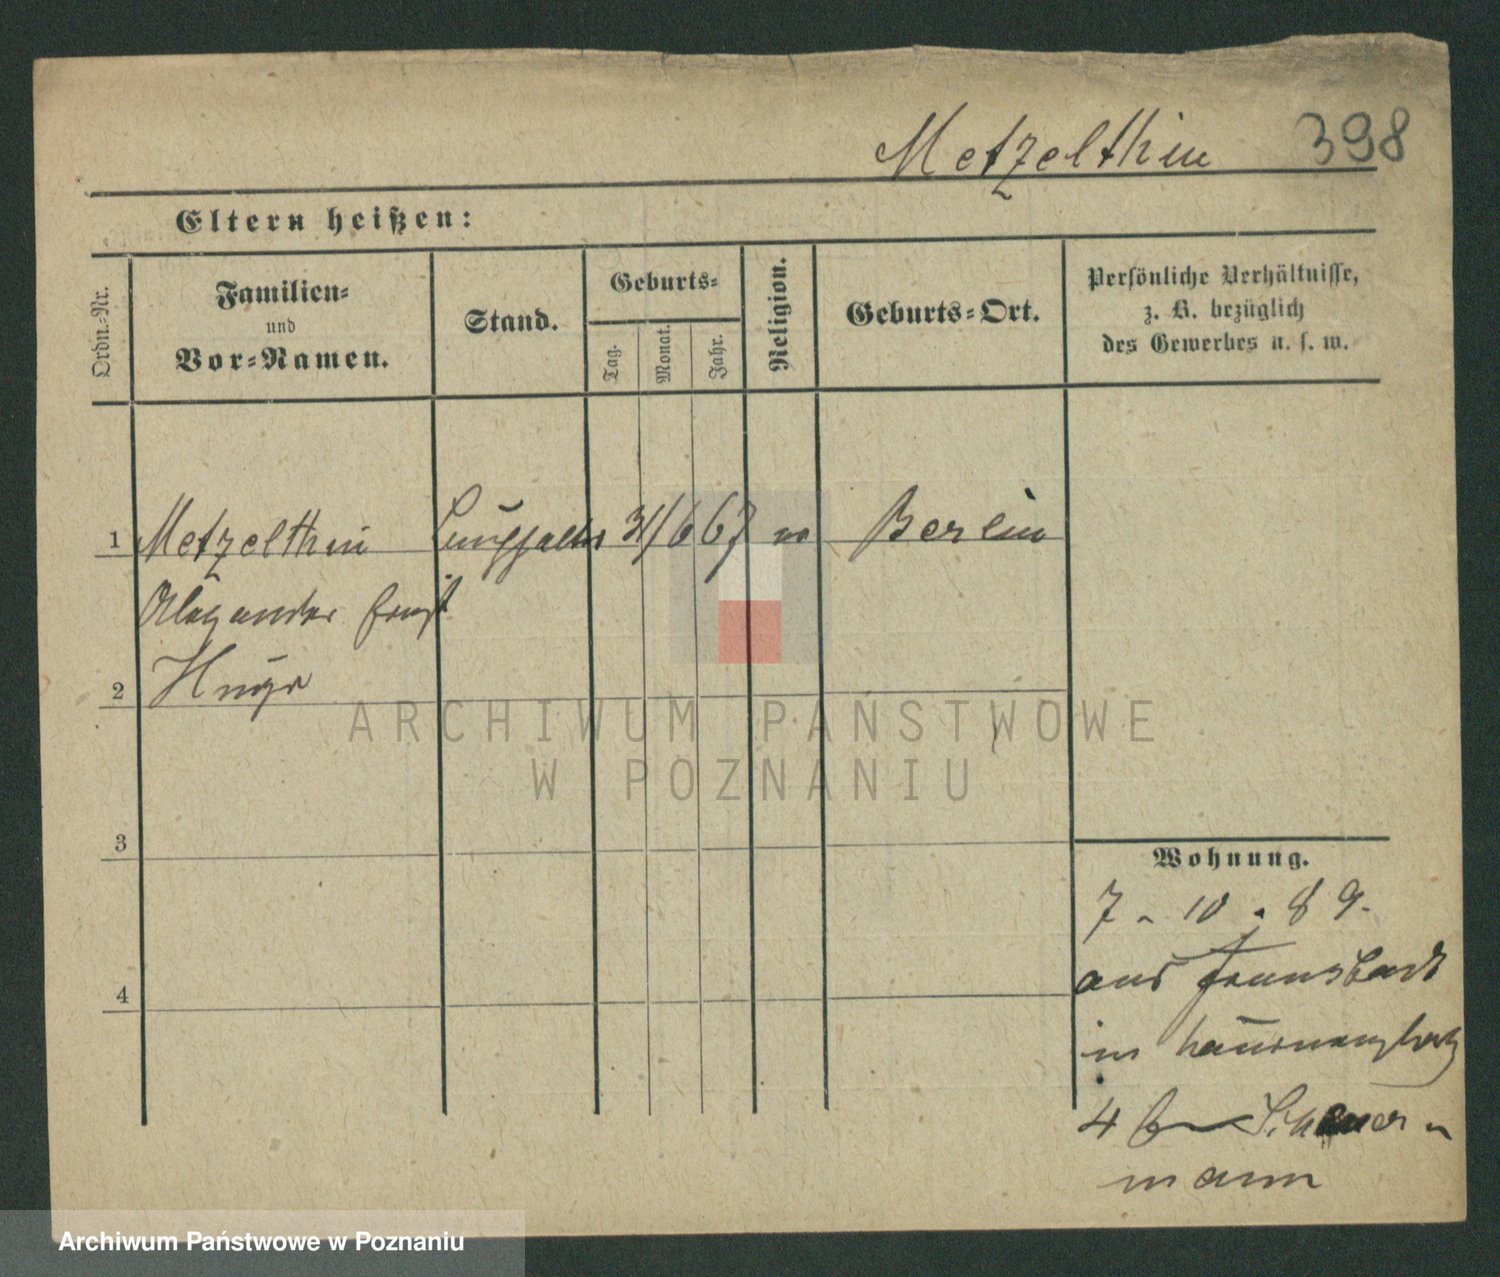 Metzelthin 398
Eltern heißen:
Ordn.-Nr.
Familien-
und
Vor-Namen.
Stand.
Geburts-
Tag.
Monat.
Jahr.
Religion.
Geburts-Ort.
Persönliche Verhältnisse,
z. B. bezüglich
des Gewerbes u. s. w.
1 Metzelthin 31/6 67 Berlin
Alexander Ernst
2 Hugo
3
4
Wohnung.
7 - 10 . 89.
aus
in
4
mann
ARCHIWUM PAŃSTWOWE
W POZNANIU
Archiwum Państwowe w Poznaniu